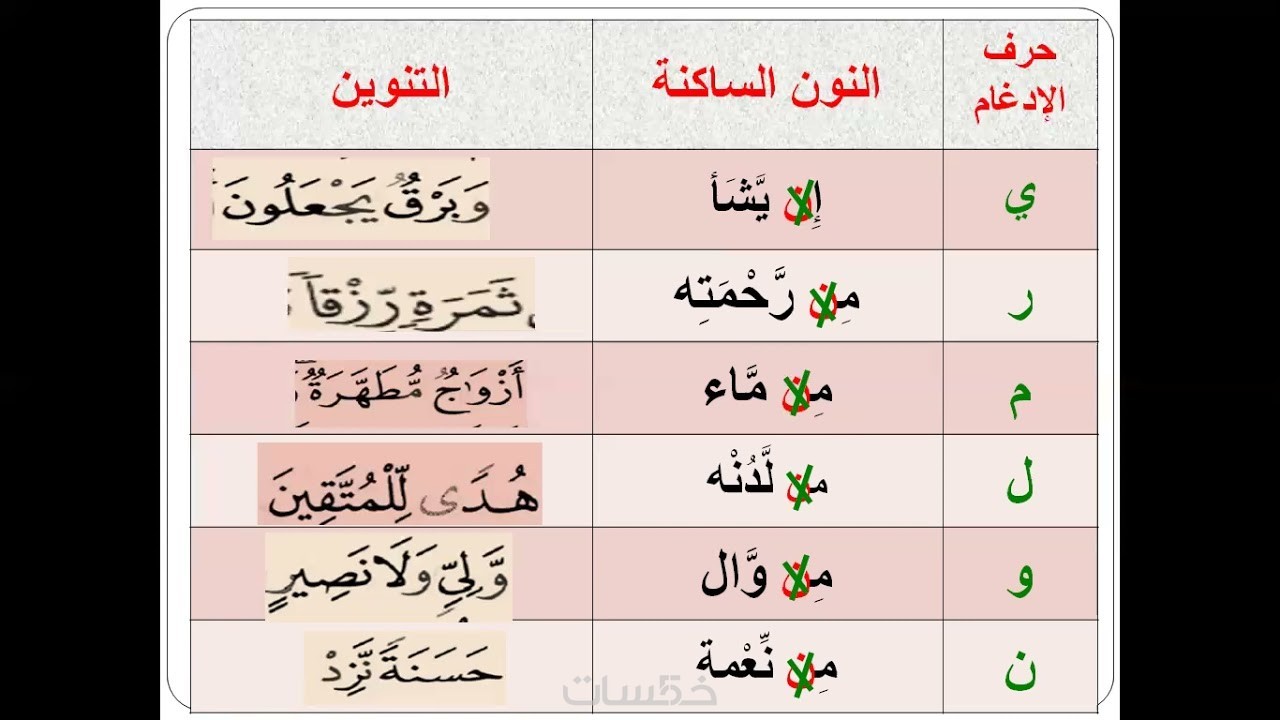 حرف الإدغام	النون الساكنة	التنوين
ي	إِن يَّشَأ	وَبَرْقٌ يَجْعَلُونَ
ر	مِن رَّحْمَتِه	ثَمَرَةٍ رِّزْقاً
م	مِن مَّاء	أَزْوَٰجٌ مُّطَهَّرَةٌ
ل	من لَّدُنْه	هُدًى لِّلْمُتَّقِينَ
و	مِن وَّال	وَّلِيٍّ وَلَا نَصِيرٍ
ن	مِن نِّعْمة	حَسَنَةً نَّزِدْ
خمسات